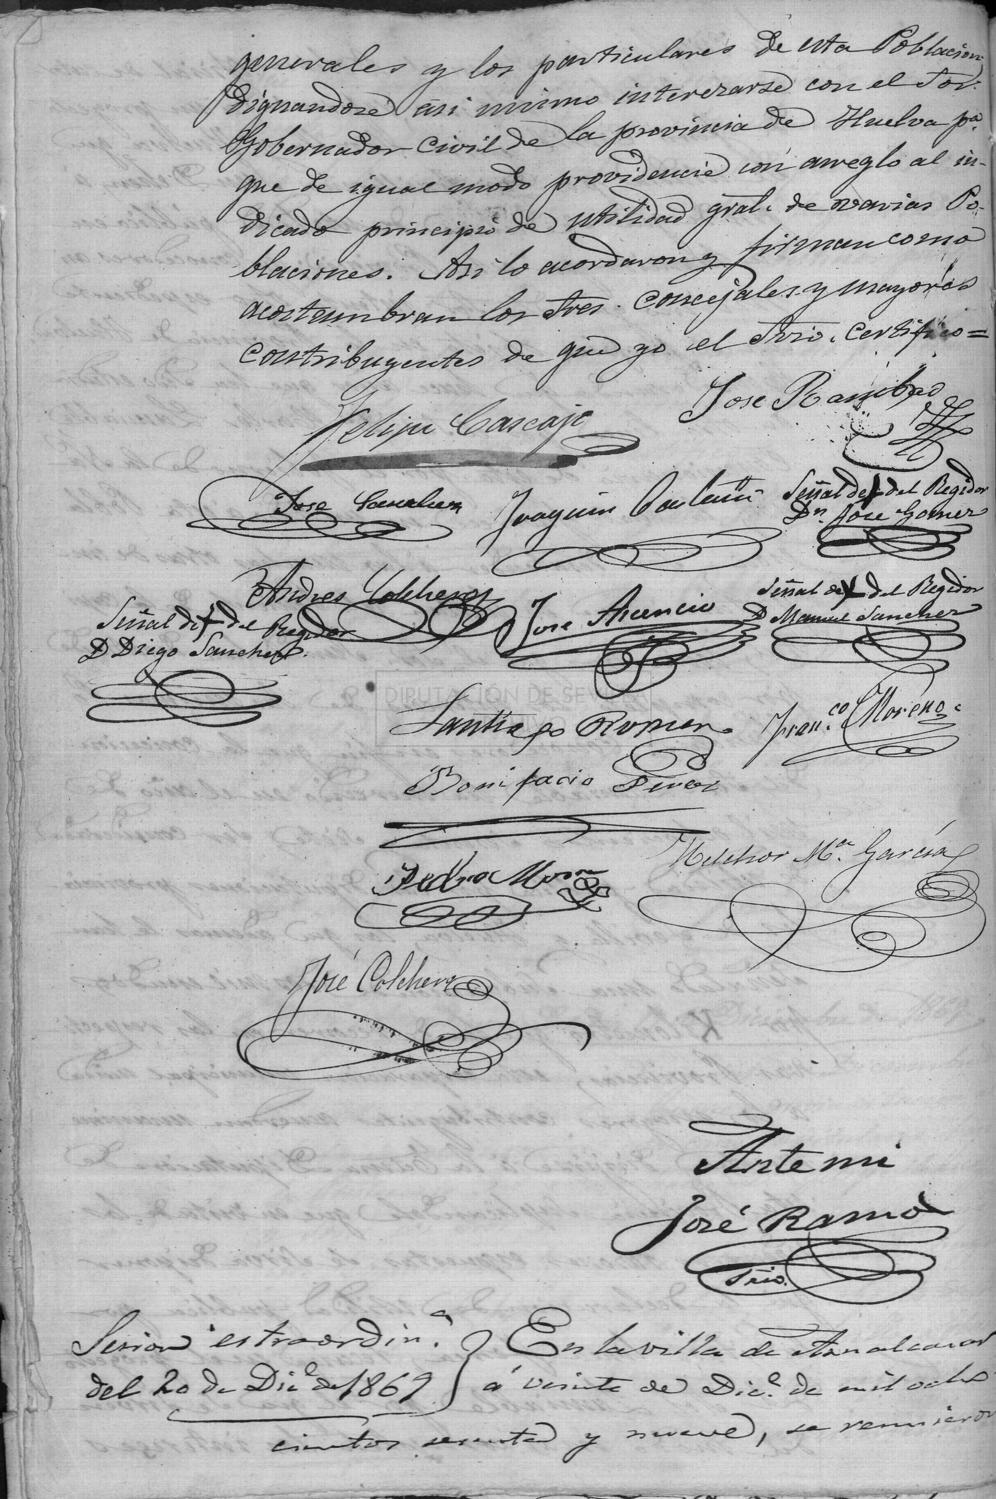 generales y los particulares de esta Poblacion
dignandose asi mismo interezarse con el Sor.
Gobernador Civil de la provincia de Huelva pa.
que de igual modo providencie con arreglo al in-
dicado principio de utilidad gral. de varias Po-
blaciones. Asi lo acordaron y firman como
acostumbran los Sres. concejales y mayores
contribuyentes de que yo el Srio. certifico=
Felipe Cascajo
José
Jose
Joaquin
Señal de + del Regidor
Dn. José Gomez
Andres Colchero
Jose Asencio
Señal de + del Regidor
D Manuel Sanchez
Señal de + del Regidor
D Diego Sanchez
DIPUTACIÓN DE SEVILLA
Santiago Romero
Franco. Moreno
Bonifacio
Pedro Mora
Melchor Ma. García
José Colchero
Ante mi
José Ramo
Srio.
Sesion estraordina.
del 20 de Dice. de 1869
En la villa de Aznalcazar
á veinte de Dice. de mil ocho
cientos sesenta y nueve, se reunieron